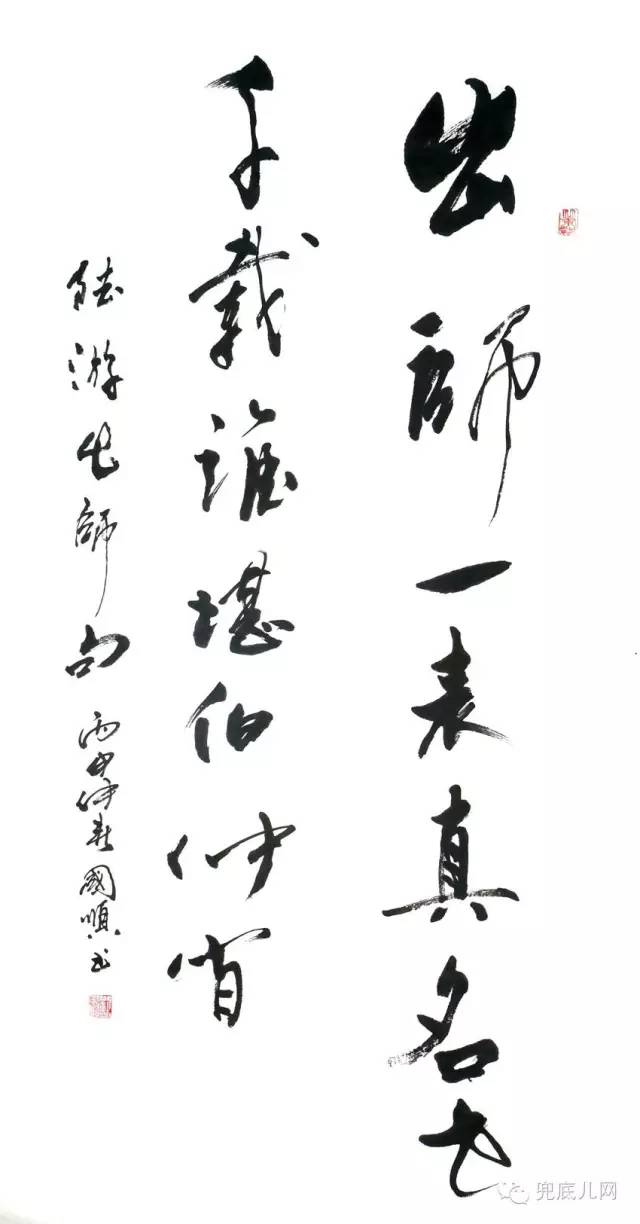 出師一表真名世
千載誰堪伯仲間
陸游出師句 丙申仲春國順书
兜底儿网